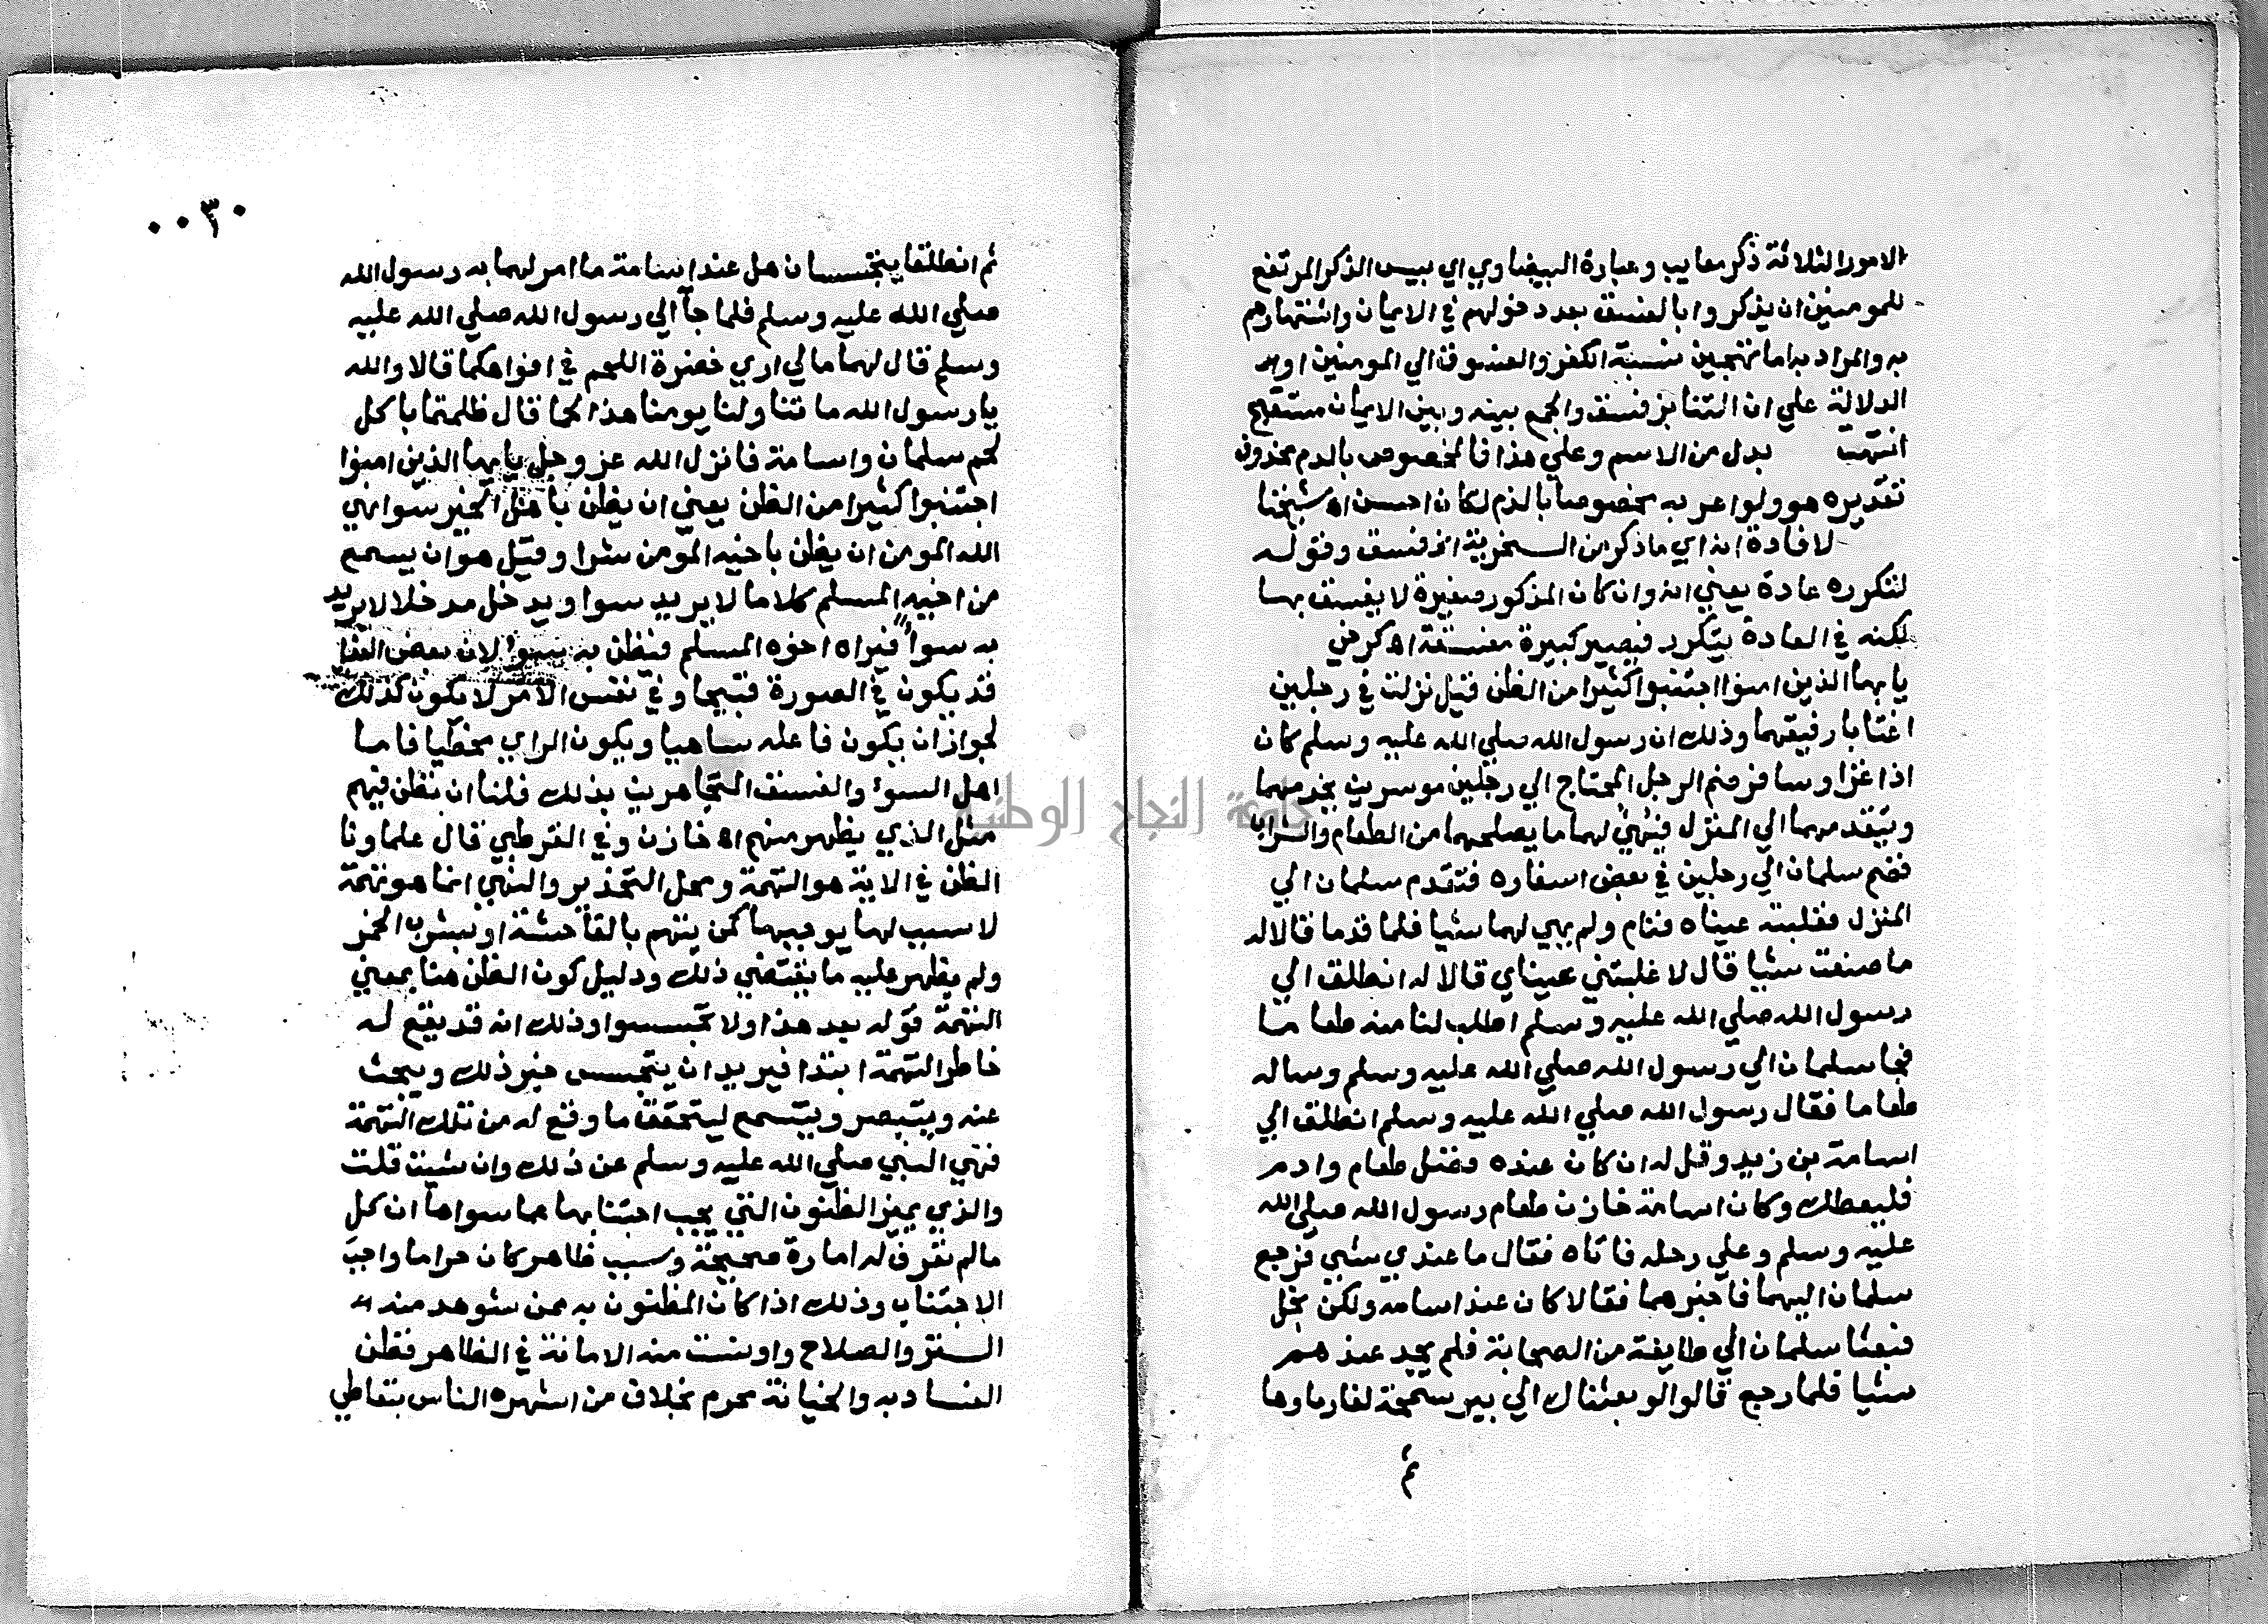 الامور الثلاثة ذكر معايب وعبارة البيضاوي اي بيس الذكر المرتفع
للمومنين ان يذكروا بالفسق بعد دخولهم في الايمان واشتهارهم
به والمراد به اما تهجين نسبة الكفر والفسوق الي المومنين او
الدلالة علي ان التنابز فسق والجمع بينه وبين الايمان مستقبح
انتهت بدل من الاسم وعلي هذا فالمخصوص بالذم محذوف
تقديره هو ولو اعربه مخصوصا بالذم لكان احسن اه شيخنا
لافادة انه اي ما ذكر من السخرية الخ فسق وقوله
لتكرره عادة يعني انه وان كان المذكور صغيرة لا يفسق بها
لكنه في العادة يتكرر فيصير كبيرة مفسقة اه كرخي
يايها الذين امنوا اجتنبوا كثيرا من الظن قيل نزلت في رجلين
اغتابا رفيقهما وذلك ان رسول الله صلي الله عليه وسلم كان
اذا غزا وسافر ضم الرجل المحتاج الي رجلين موسرين يخدمهما
ويتقدمهما الي المنزل فيهئ لهما ما يصلحهما من الطعام والشراب
فضم سلمان الي رجلين في بعض اسفاره فتقدم سلمان الي
المنزل فغلبته عيناه فنام ولم يهي لهما شيا فلما قدما قالا له
ما صنعت شيا قال لا غلبتني عيناي قالا له انطلق الي
رسول الله صلي الله عليه وسلم اطلب لنا منه طعاما
فجا سلمان الي رسول الله صلي الله عليه وسلم وساله
طعاما فقال رسول الله صلي الله عليه وسلم انطلق الي
اسامة بن زيد وقل له ان كان عنده فضل طعام وادم
فليعطك وكان اسامة خازن طعام رسول الله صلي الله
عليه وسلم وعلي رحله فاتاه فقال ما عندي شيي فرجع
سلمان اليهما فاخبرهما فقالا كان عند اسامه ولكن بخل
فبعثا سلمان الي طايفة من الصحابة فلم يجد عندهم
شيا فلما رجع قالوا لو بعثناك الي بير سميحة لغار ماوها
ثم
٠٠٣٠
ثم انطلقا يتجسسان هل عند اسامة ما امر لهما به رسول الله
صلي الله عليه وسلم فلما جآ الي رسول الله صلي الله عليه
وسلم قال لهما مالي اري خضرة اللحم في افواهكما قالا والله
يارسول الله ما تناولنا يومنا هذا لحما قال ظلمتما باكل
لحم سلمان واسامة فانزل الله عز وجل يايها الذين امنوا
اجتنبوا كثيرا من الظن يعني ان يظن باهل الخير سوا نهي
الله المومن ان يظن باخيه المومن شرا وقيل هو ان يسمع
من اخيه المسلم كلاما لا يريد سوا ويدخل مدخلا لا يريد
به سوا فيراه اخوه المسلم فيظن به سوا لان بعض الفعل
قد يكون في الصورة قبيحا وفي نفس الامر لا يكون كذلك
لجواز ان يكون فاعله ساهيا ويكون الراي مخطيا فاما
اهل السوء والفسق المتجاهرين بذلك فلنا ان نظن فيهم
مثل الذي يظهر منهم اه خازن وفي القرطبي قال علماونا
الظن في الاية هو التهمة ومحل التحذير والنهي انما هو تهمة
لا سبب لها يوجبها كمن يتهم بالفاحشة او بشرب الخمر
ولم يظهر عليه ما يقتضي ذلك ودليل كون الظن هنا بمعني
التهمة قوله بعد هذا ولا تجسسوا وذلك انه قد يقع له
خاطر التهمة ابتدا فيريد ان يتجسس خبر ذلك ويبحث
عنه ويتبصر ويتسمع ليتحقق ما وقع له من تلك التهمة
فنهي النبي صلي الله عليه وسلم عن ذلك وان شيت قلت
والذي يميز الظنون التي يجب اجتنابها عما سواها ان كل
مالم تعرف له امارة صحيحة وسبب ظاهر كان حراما واجب
الاجتناب وذلك اذا كان المظنون به ممن شوهد منه
الستر والصلاح واونست منه الامانة في الظاهر فظن
الفساد به والخيانة محرم بخلاف من اشهره الناس بتعاطي
جامعة النجاح الوطنية